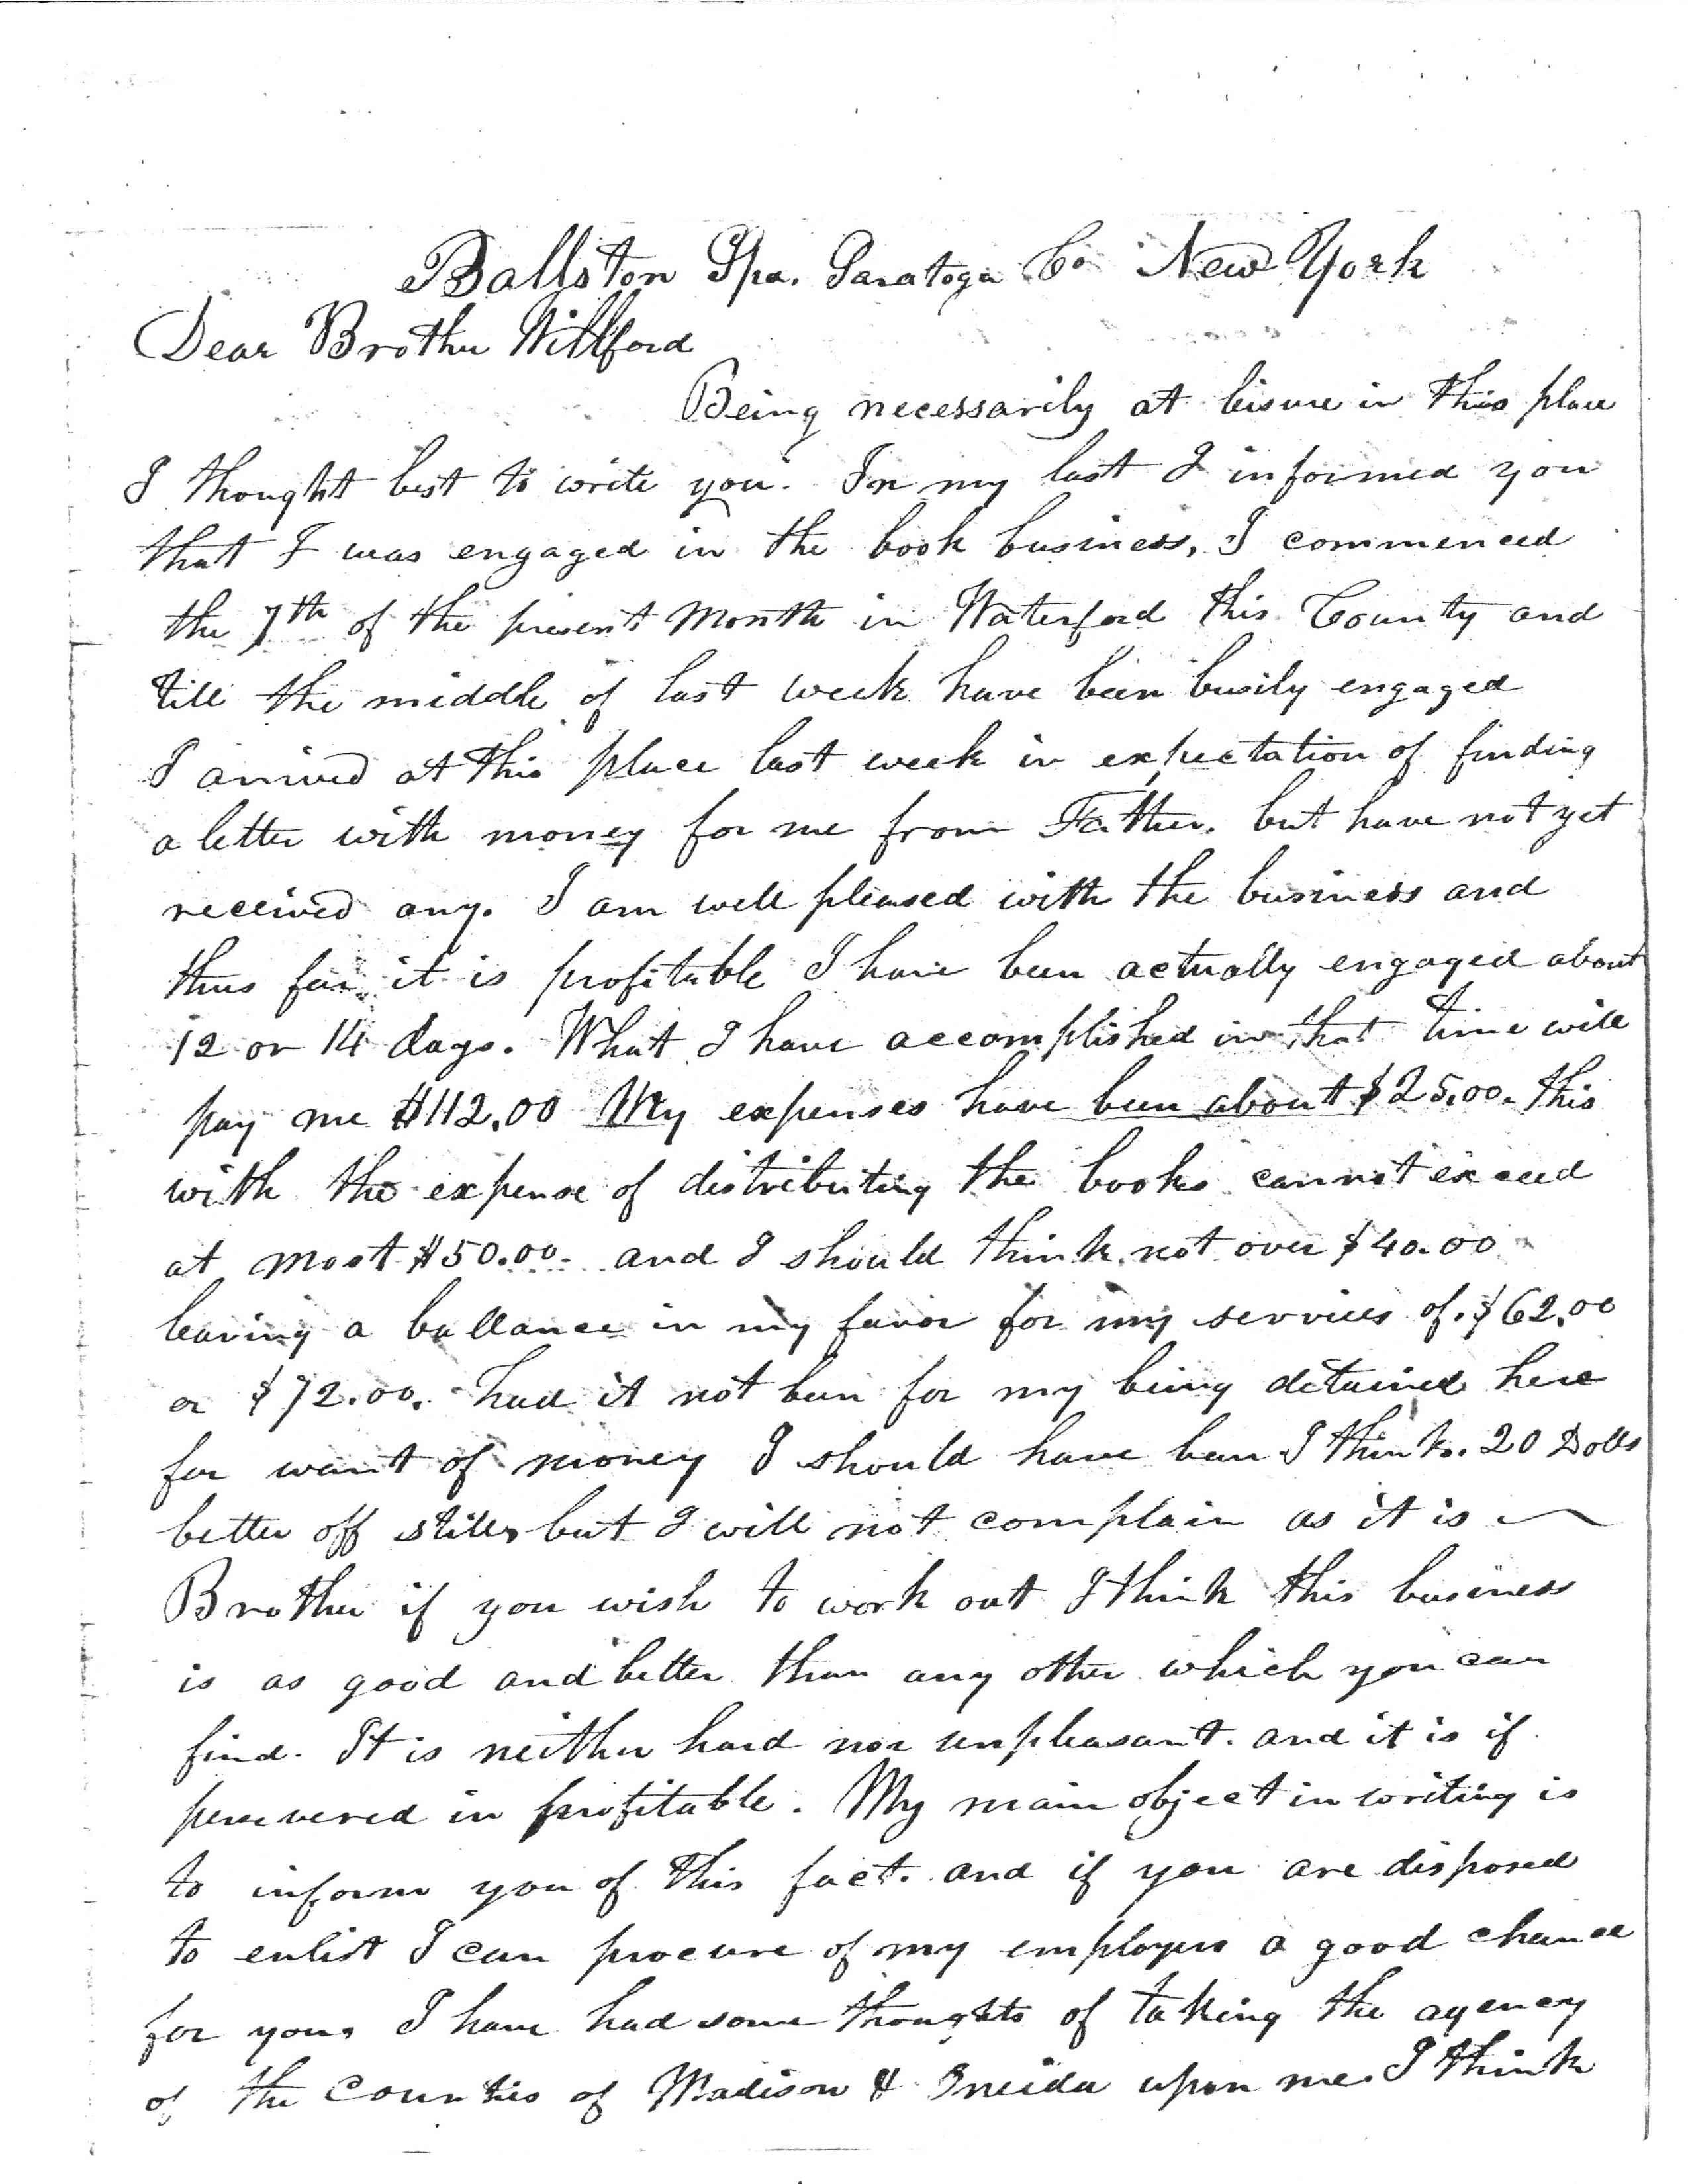 Ballston Spa. Saratoga Co New York
Dear Brother Willford
Being necessarily at leisure in this place
I thought best to write you. In my last I informed you
that I was engaged in the book business, I commenced
the 7th of the present Month in Waterford this County and
till the middle of last week have been busily engaged
I arrived at this place last week in expectation of finding
a letter with money for me from Father. but have not yet
received any. I am well pleased with the business and
thus far it is profitable I have been actually engaged about
12 or 14 days. What I have accomplished in that time will
pay me $112.00 My expenses have been about $25.00. this
with the expense of distributing the books cannot exceed
at most $50.00. and I should think not over $40.00
leaving a ballance in my favor for my services of. $62.00
or $72.00. had it not been for my being detained here
for want of money I should have been I think. 20 Dolls
better off still, but I will not complain as it is
Brother if you wish to work out I think this business
is as good and better than any other which you can
find. It is neither hard nor unpleasant. and it is if
persevered in profitable. My main object in writing is
to inform you of this fact. and if you are disposed
to enlist I can procure of my employers a good chance
for you, I have had some thoughts of taking the agency
of the Counties of Madison & Oneida upon me. I think